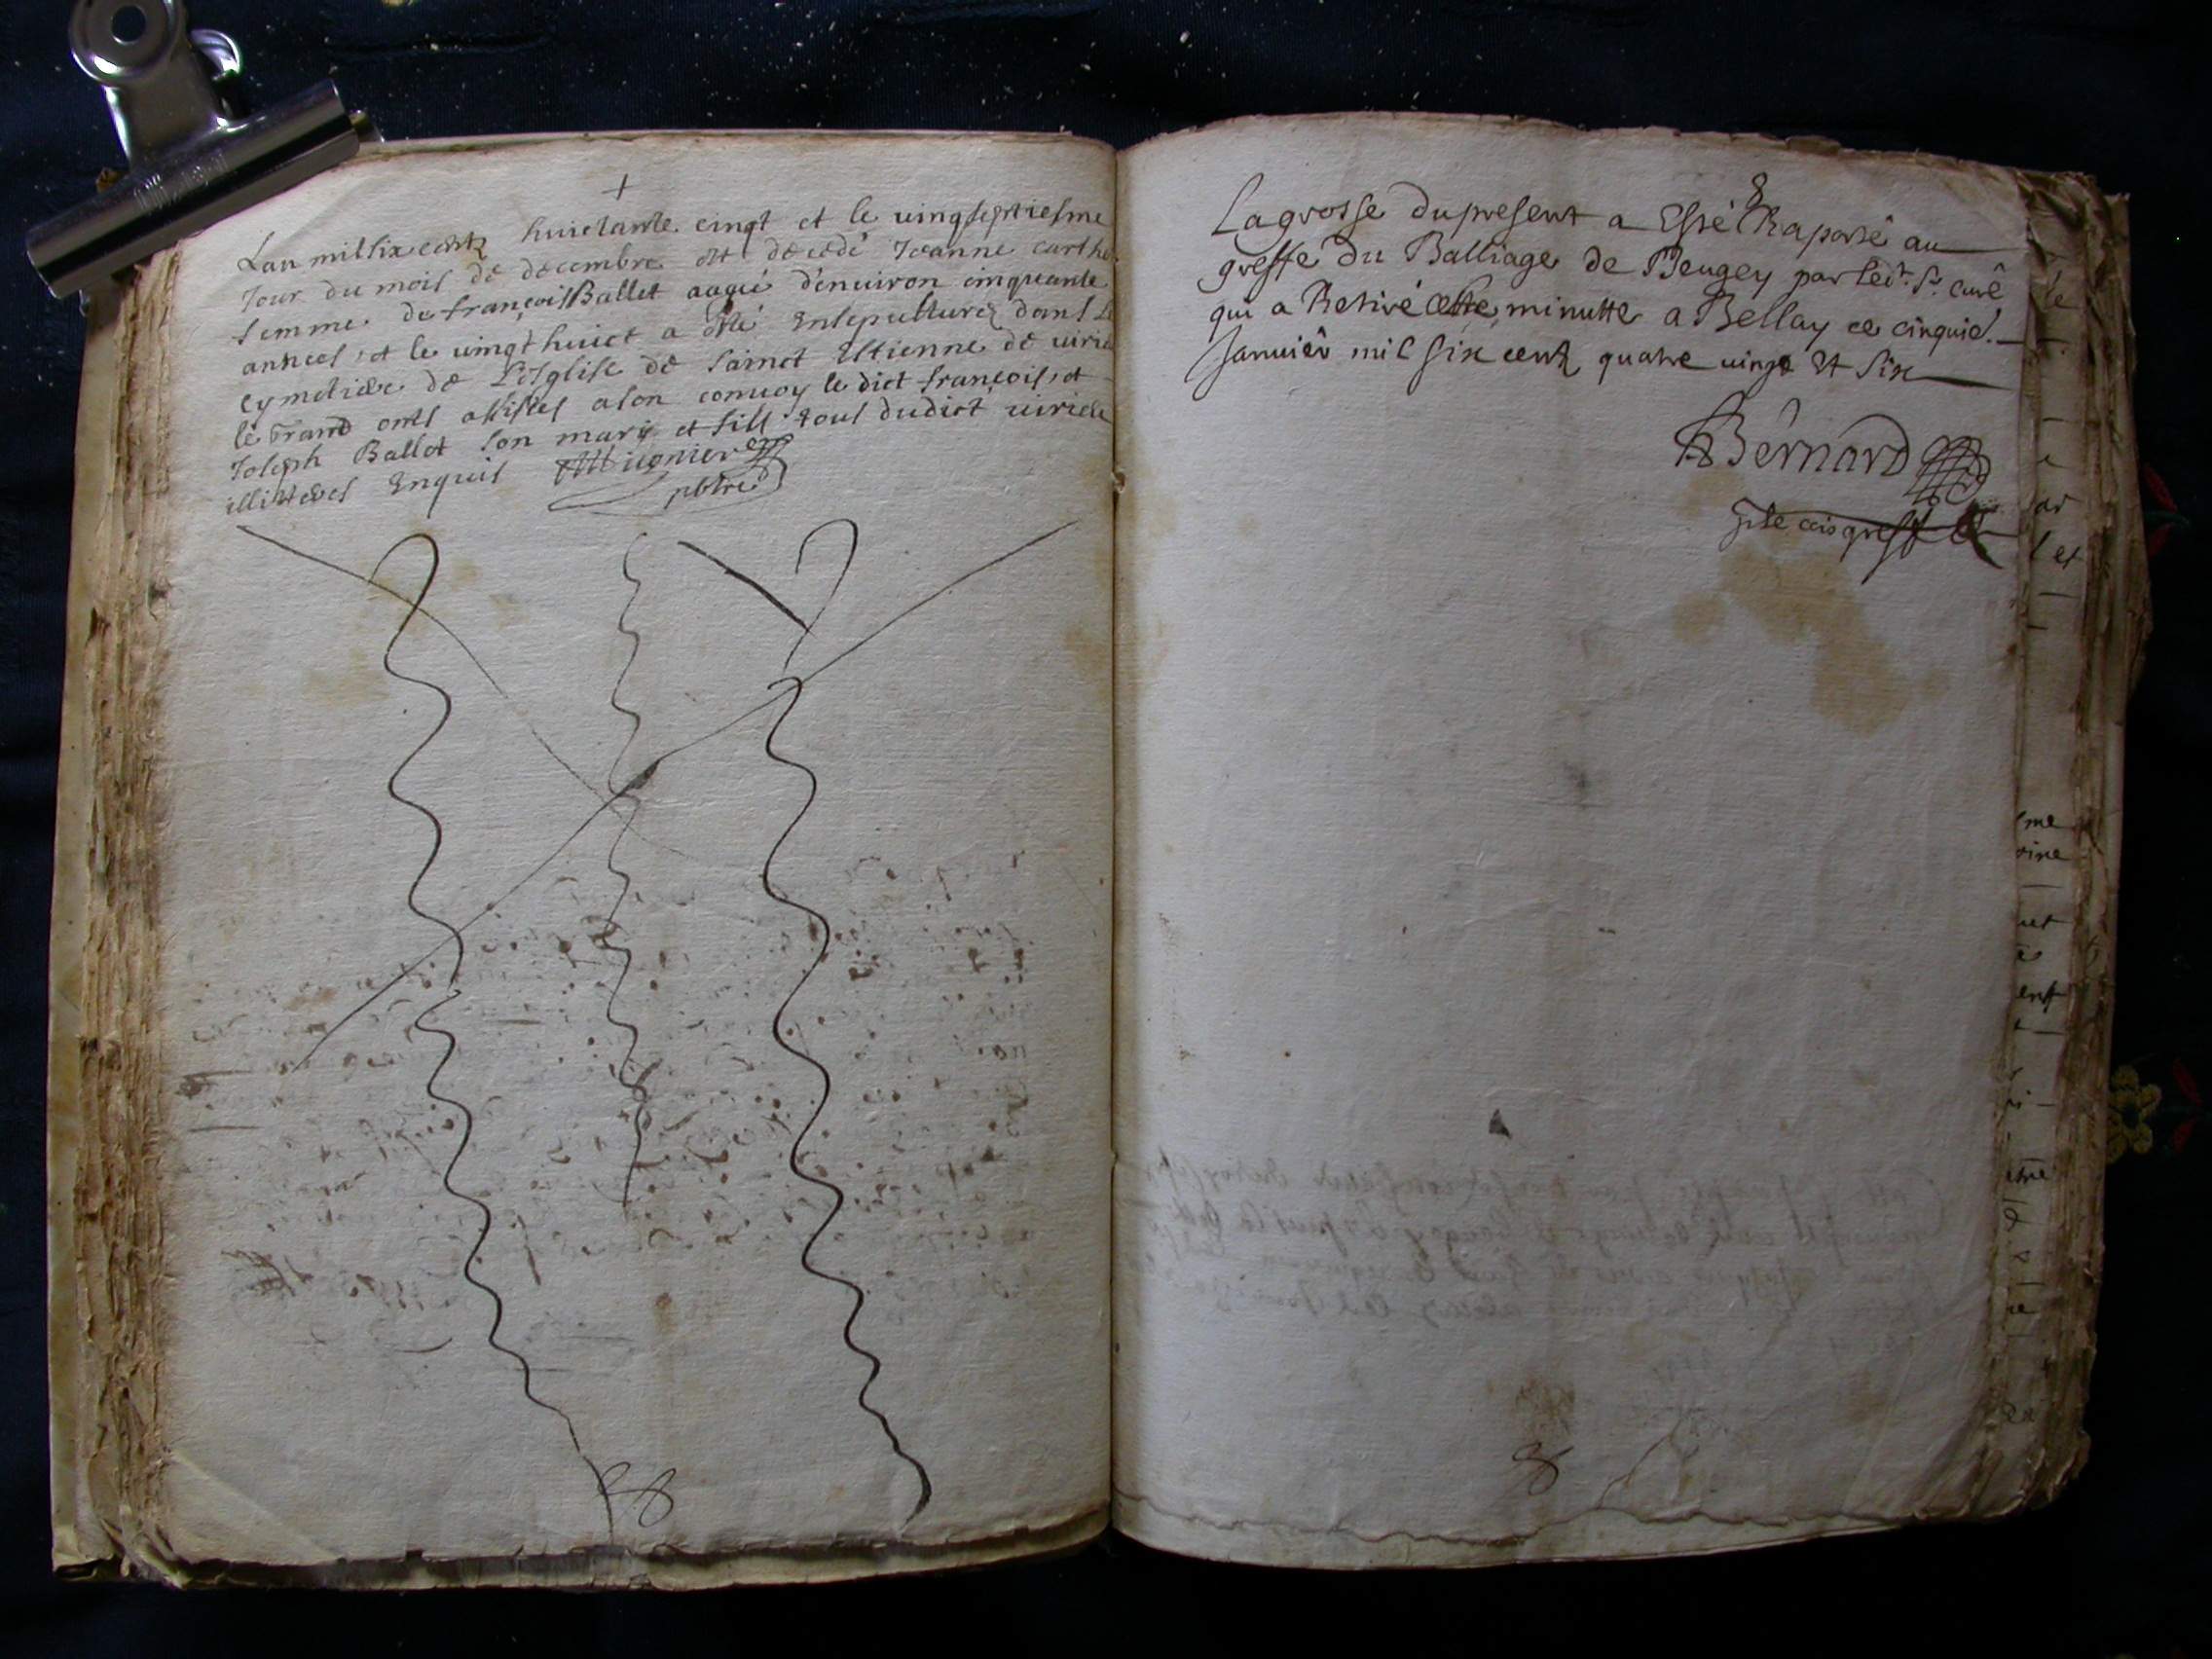 Lan mil six centz huictante cinqt et le uingseptiesme
Jour du mois de decembre est decedé Jeanne carthe
femme de françois Ballet aagé denuiron cinquante
annees, et le uingt huict a esté Ensepulturez dans Le
cymetiere de L'Esglise de sainct Estienne de uirie
le Grand onts assistes a son conuoy le dict françois, et
Joseph Ballet son mary et fils tous dudict uirieu
illitteres Enquis
pbtre
La grosse du present a Esté Raporté au
greffe du Balliage de Beugey par led.t S.r curé
qui a Retiré cette minutte a Bellay ce cinquie.
Januier mil six centz quatre uingt Et six
Bernard